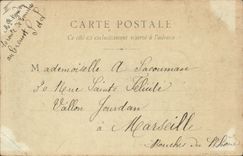 CARTE POSTALE
Ce côté est exclusivement réservé à l'adresse
Mademoiselle A Sacoman
30 Rue Sainte Félicité
Vallon Jourdan
à Marseille
Bouches du Rhône